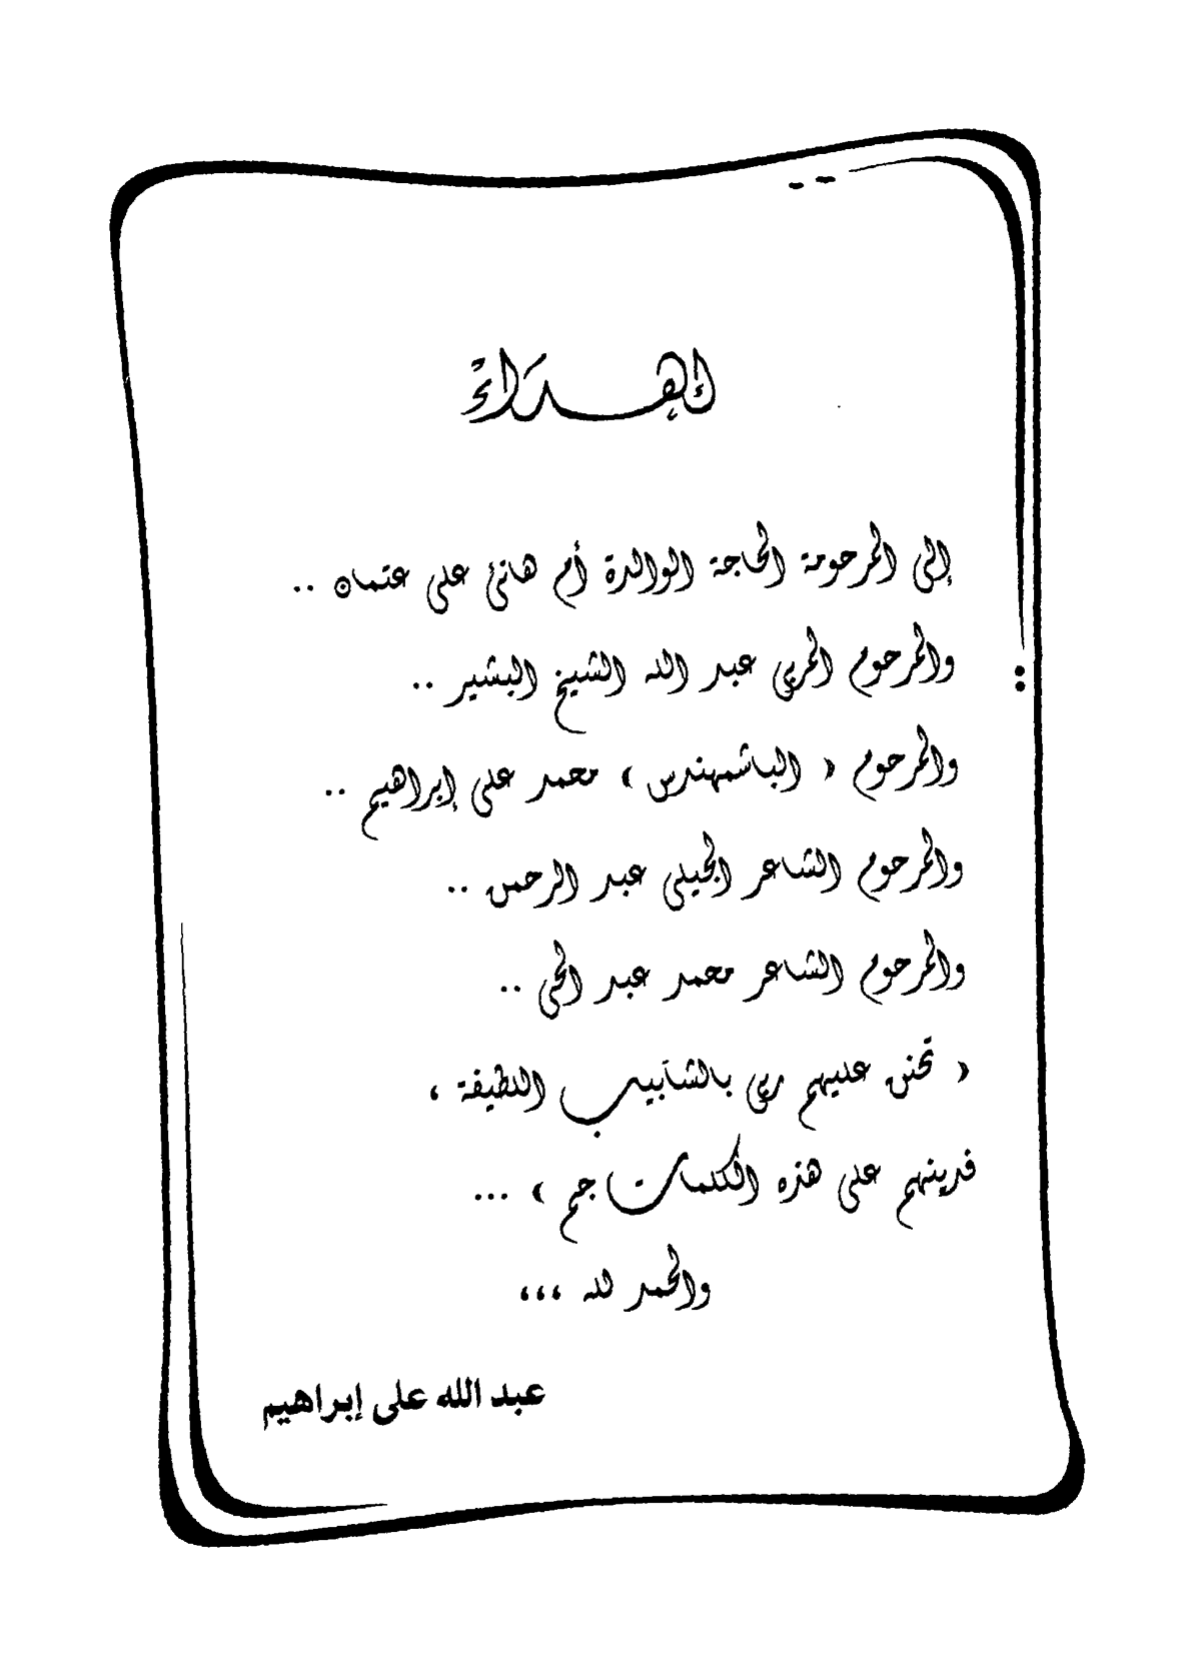 إهداء
إلى المرحومة الحاجة الوالدة أم هانئ على عثمان ..
والمرحوم المربي عبد الله الشيخ البشير ..
والمرحوم ( الباشمهندس ) محمد على إبراهيم ..
والمرحوم الشاعر الجيلى عبد الرحمن ..
والمرحوم الشاعر محمد عبد الحى ..
( تحنن عليهم ربي بالشآبيب اللطيفة ،
فدينهم على هذه الكلمات جم ) ...
والحمد لله ،،،
عبد الله على إبراهيم